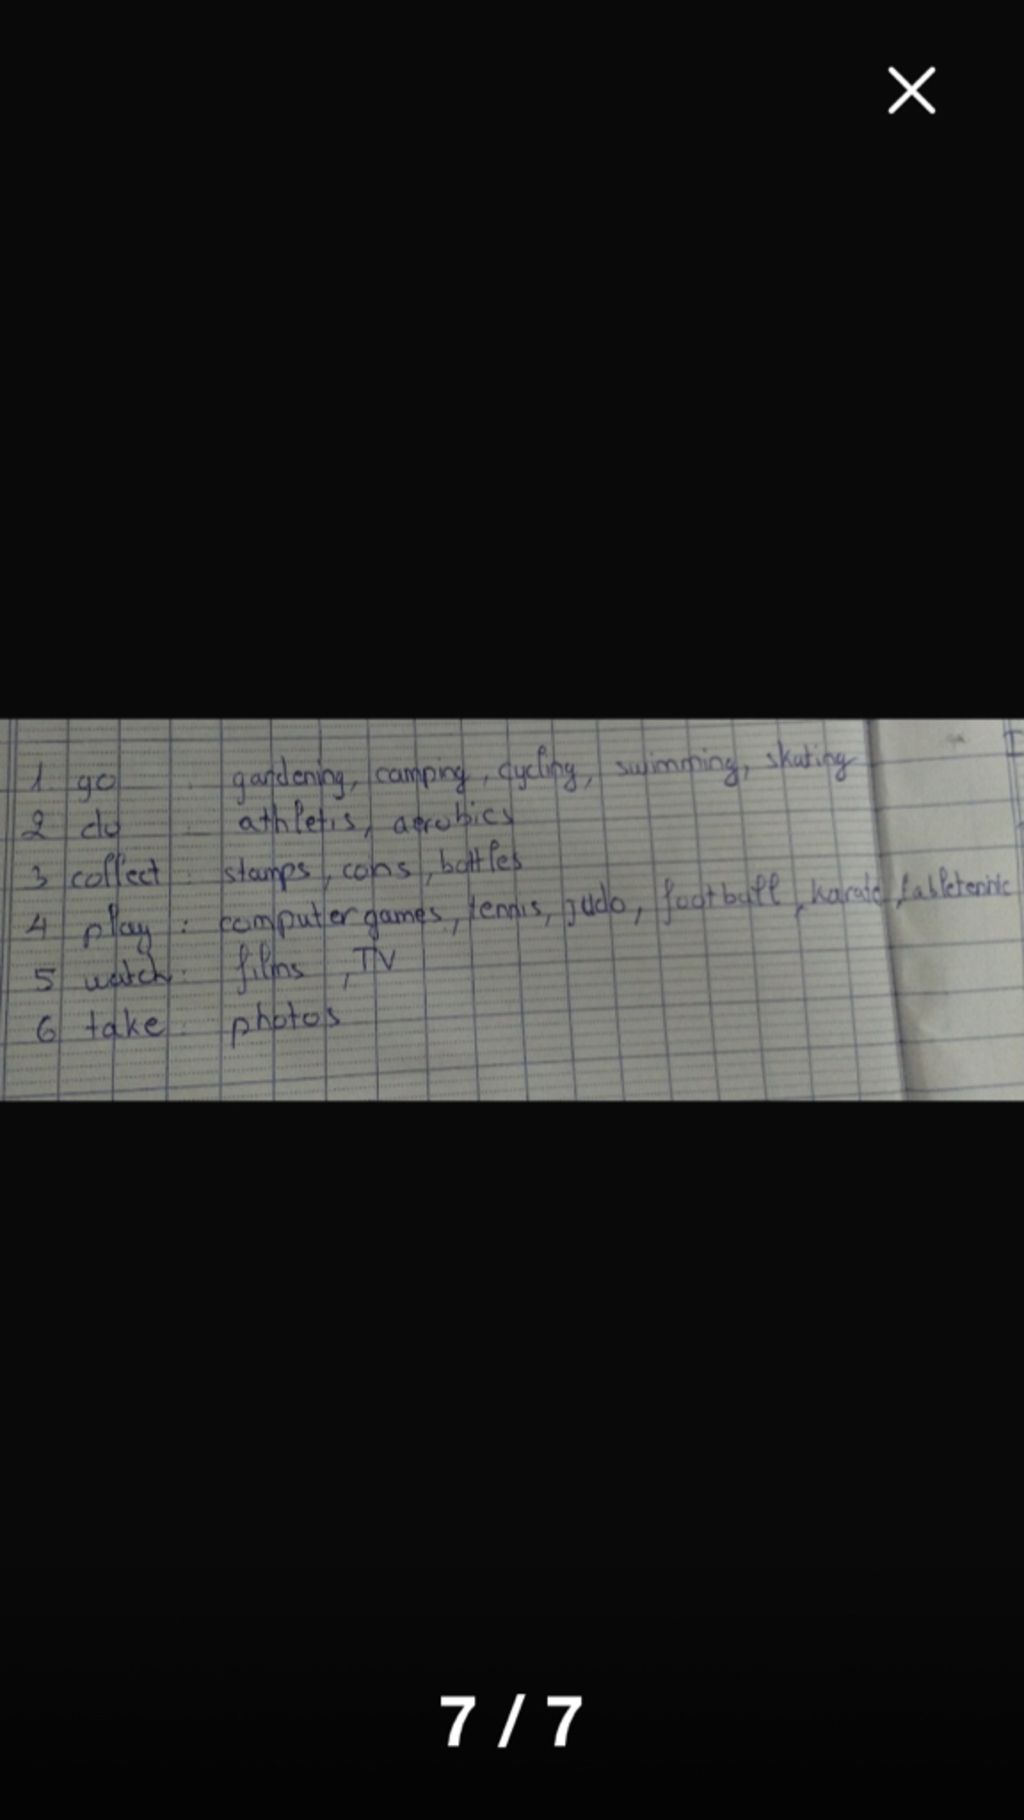 1 go : gardening, camping, cycling, swimming, skating
2 do : athletis, aerobics
3 collect : stamps, cans, bottles
4 play : computer games, tennis, judo, football, karate, tabletennic
5 watch : films, TV
6 take : photos
7 / 7